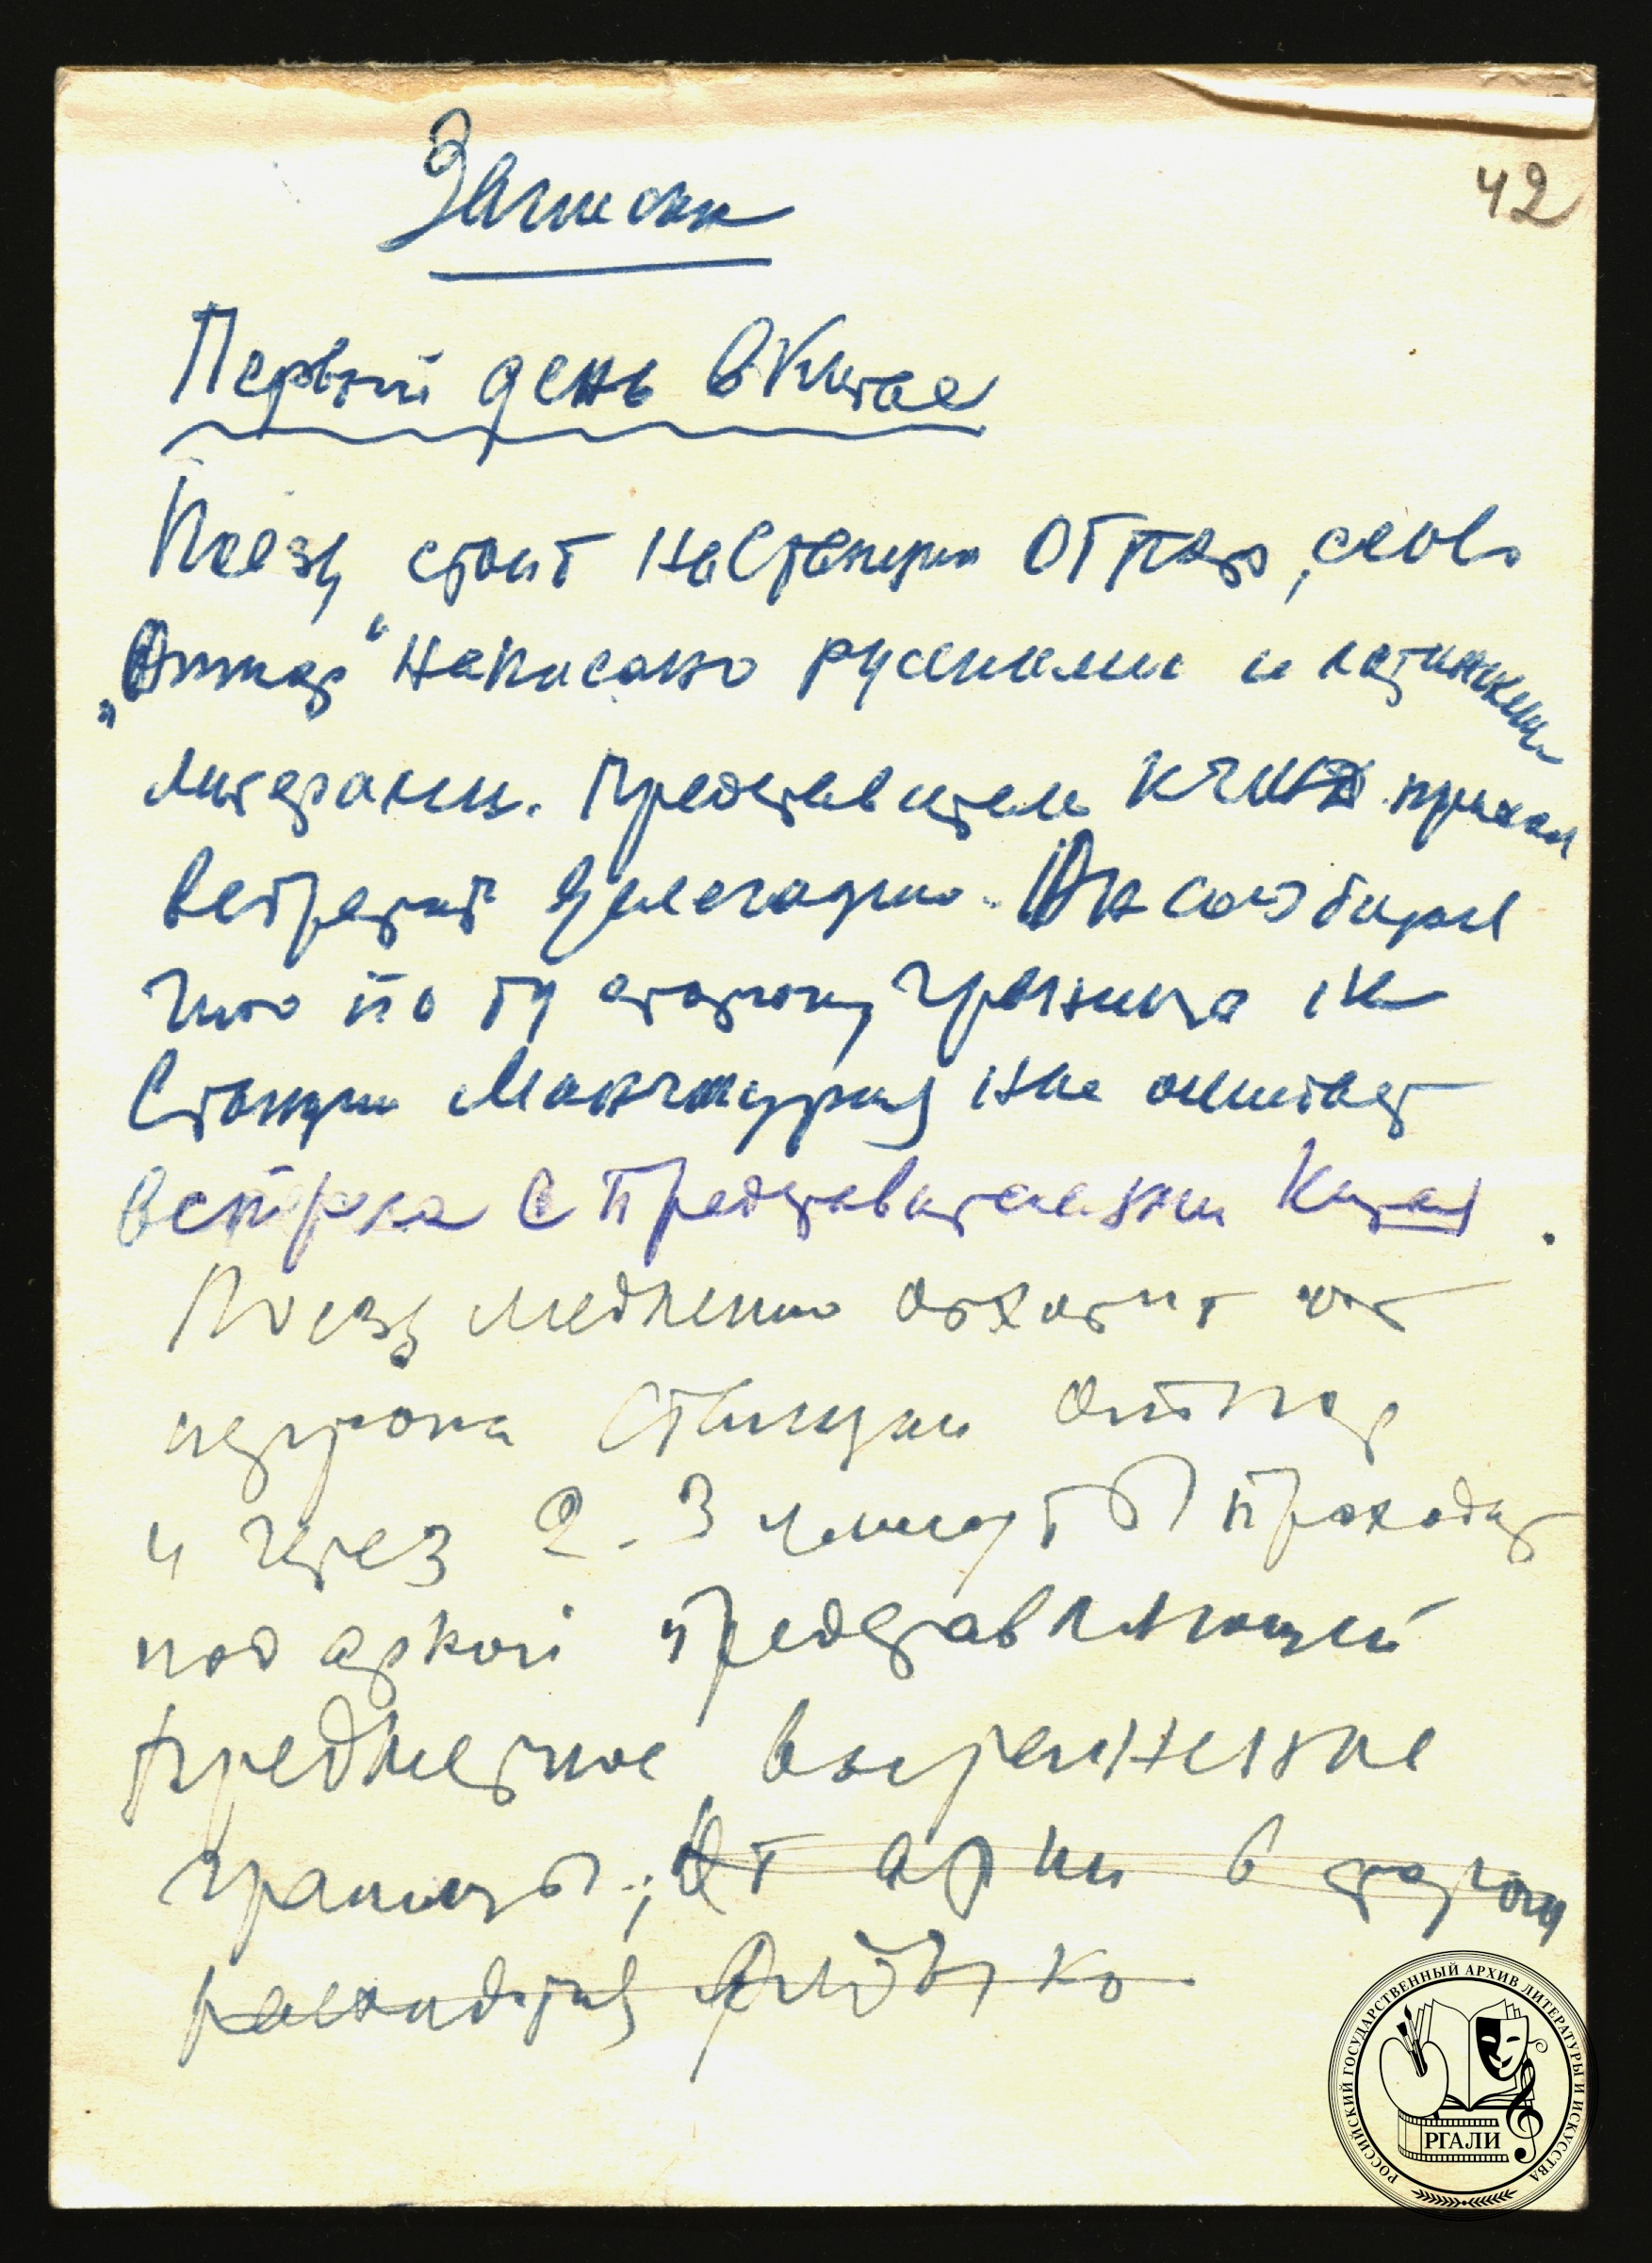 42
Записки
Первый день в Китае
Поезд стоит на Станции Отпор, слово
„Отпор“ написано русскими и латинскими
литерами. Представитель приехал
встретить делегацию. Он сообщил
что по ту сторону границы на
Станции Манчжурия нас ожидает
встреча с представителями Китая.
Поезд медленно отходит от
перрона Станции Отпор
и через 2-3 минуты проходит
под аркой представляющей
предметное выражение
границы; От арки в сторону
РОССИЙСКИЙ ГОСУДАРСТВЕННЫЙ АРХИВ ЛИТЕРАТУРЫ И ИСКУССТВА
РГАЛИ